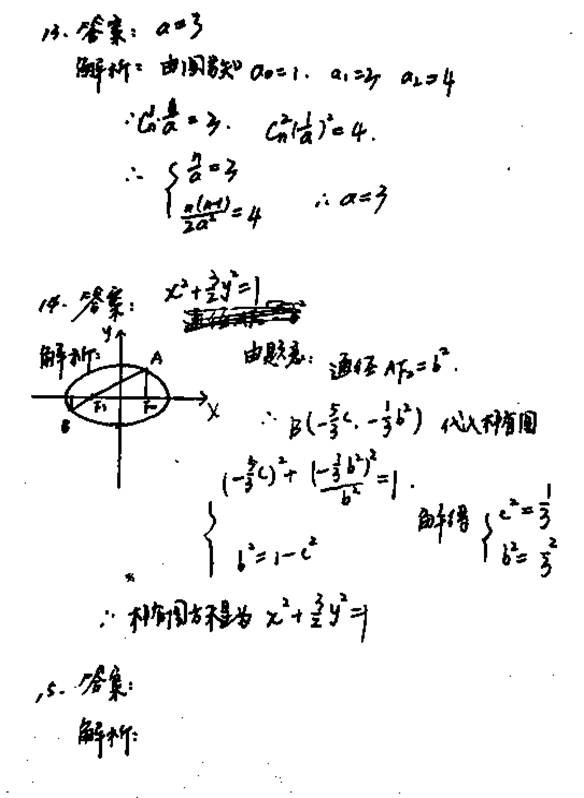 13. 答案: a=3
解析: 由图易知 a₀=1. a₁=3 a₂=4
∴Cₙ¹·1/a=3. Cₙ²(1/a)²=4.
∴ { n/a=3
n(n-1)/2a²=4 ∴ a=3
14. 答案: x²+3/2y²=1
解析: 由题意: 通径 AF₂=b².
y A
F₁ F₂ x
B
∴ B(-5/3c, -1/3b²) 代入椭圆
{ (-5/3c)²+(-1/3b²)²/b²=1.
b²=1-c²
解得 { c²=1/3
b²=2/3
∴ 椭圆方程为 x²+3/2y²=1
15. 答案:
解析: